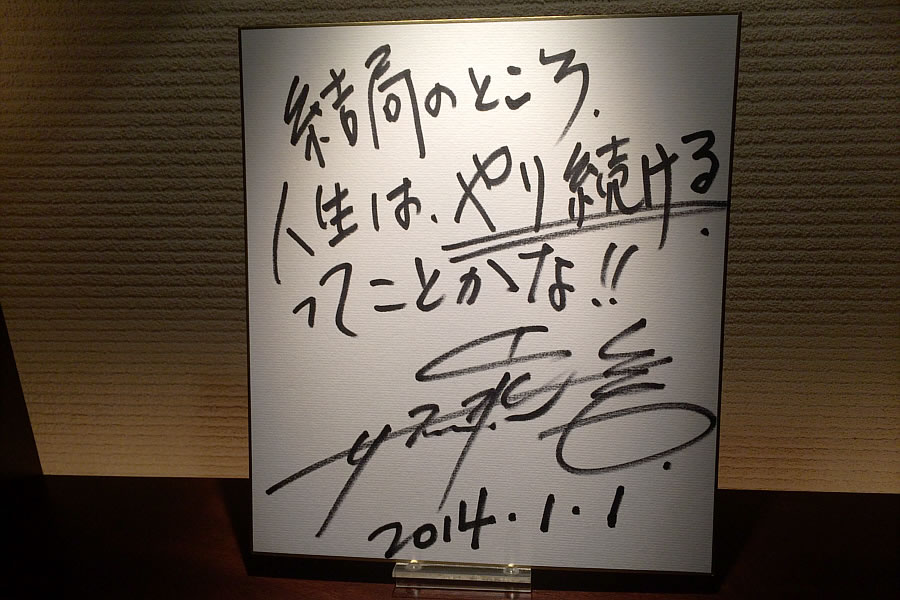 結局のところ.
人生は、やり続ける.
ってことかな!!
2014.1.1